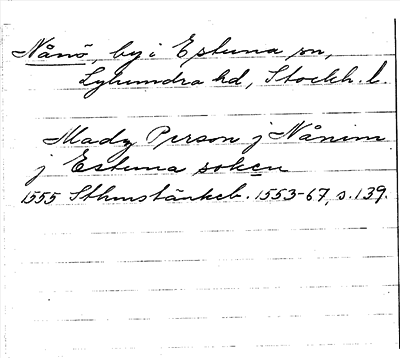 Nånö, by i Estuna sn,
Lyhundra hd, Stockh. l.
Madz Person j Nånim
j Estuna soken
1555 Sthmstänkeb. 1553-67, s. 139.